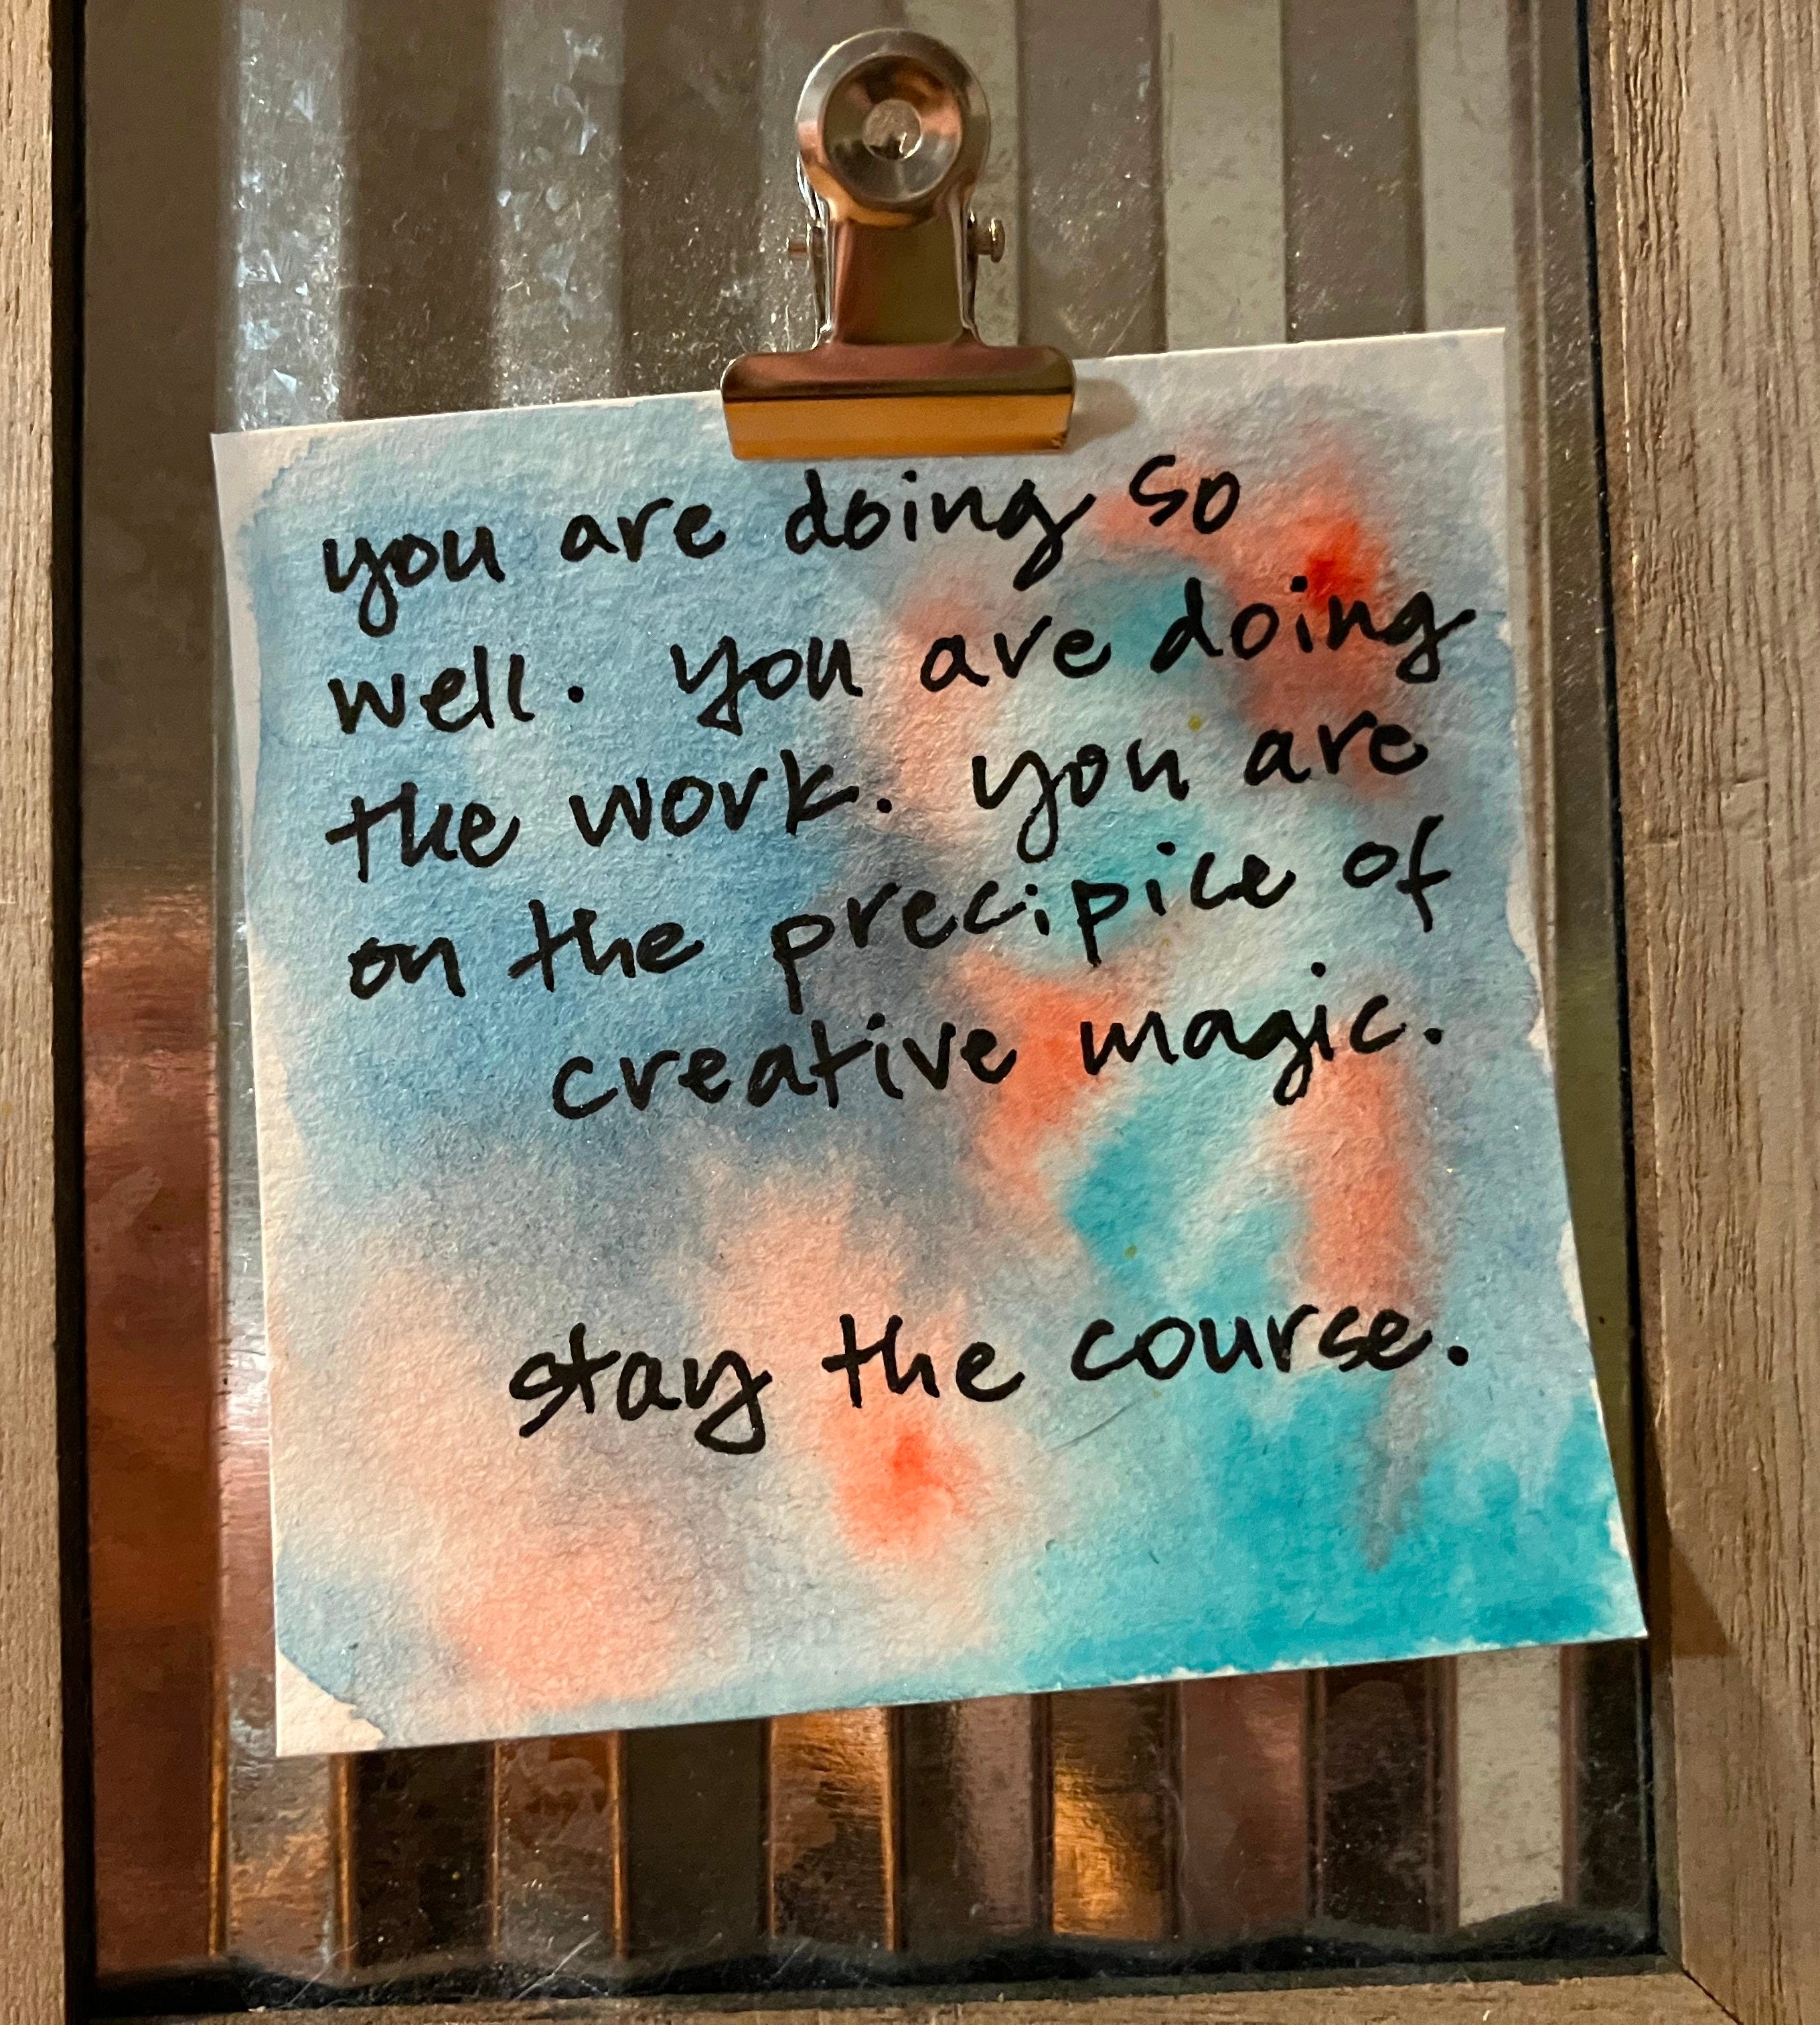 you are doing so
well. you are doing
the work. you are
on the precipice of
creative magic.
stay the course.